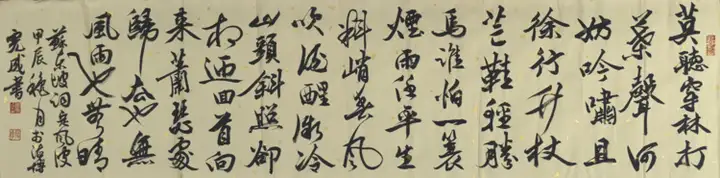 莫聽穿林打
葉聲何
妨吟嘯且
徐行竹杖
芒鞋輕勝
馬誰怕一蓑
煙雨任平生
料峭春風
吹酒醒微冷
山頭斜照卻
相迎回首向
來蕭瑟處
歸去也無
風雨也無晴
蘇東坡詞定風波
甲辰 月於
書